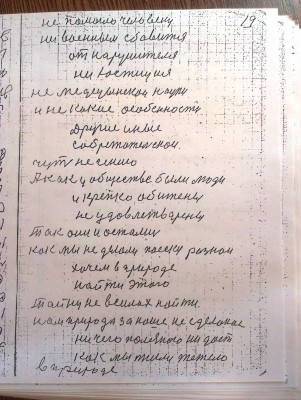 не помогло человеку 19
ни военным сбавится
от нарушителя
ни юстиция
не медецынской науки
и не какие особенности
другие иные
чуть не сению
А как у обществе были люди
и крепко обижены
не удовлетворены
так они и остались
как мы не делали поиски разном
хочем в природе
найти этого
тайну не в силах найти.
нам природа за наше не сделоное
ничего полезного ни даст
как мы жили тежело
в природе